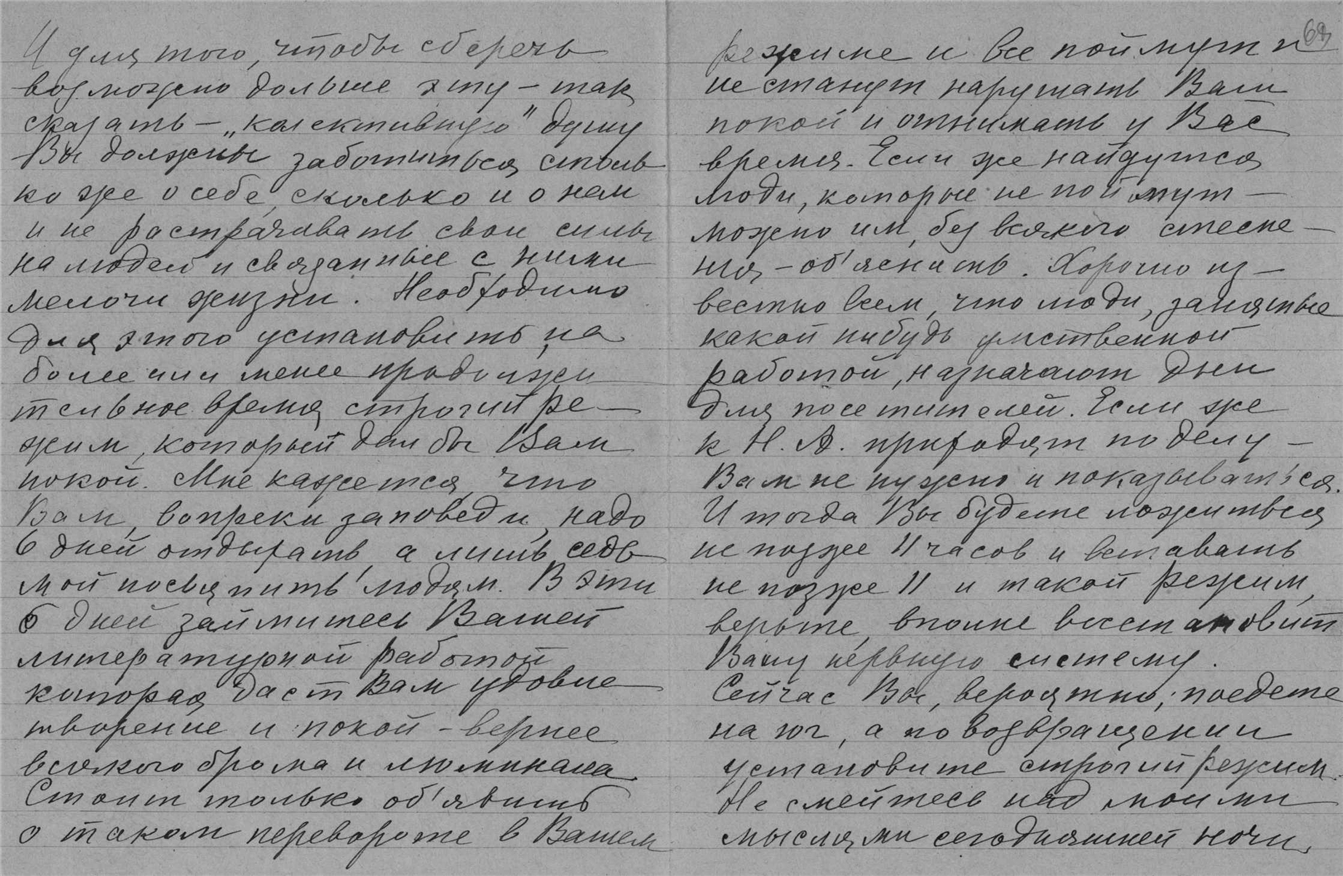 И для того, чтобы сберечь
возможно дольше эту – так
сказать – „колективную" душу
Вы должны заботиться столь
ко же о себе, сколько и о нем
и не растрачивать свои силы
на людей и связанные с ними
мелочи жизни. Необходимо
для этого установить на
более или менее продолжи
тельное время строгий ре–
жим, который дал бы Вам
покой. Мне кажется, что
Вам, вопреки заповеди, надо
6 дней отдыхать, а лишь седь
мой посвятить людям. В эти
6 дней займитесь Вашей
литературной работой
которая даст Вам удовле
творение и покой – вернее
всякого брома и люминала.
Стоит только об'явить
о таком перевороте в Вашем
69
режиме и все поймут и
не станут нарушать Вам
покой и отнимать у Вас
время. Если же найдутся
люди, которые не поймут –
можно им, без всякого стесне–
ния – об'яснить. Хорошо из–
вестно всем, что люди, занятые
какой нибудь умственной
работой, назначают дни
для посетителей. Если же
к Н. А. приходят по делу –
Вам не нужно и показываться.
И тогда Вы будете ложиться
не позже 11 часов и вставать
не позже 11 и такой режим,
верьте, вполне восстановит
Вашу нервную систему.
Сейчас Вы, вероятно, поедете
на юг, а по возвращении
установите строгий режим.
Не смейтесь над моими
мыслями сегодняшней ночи,